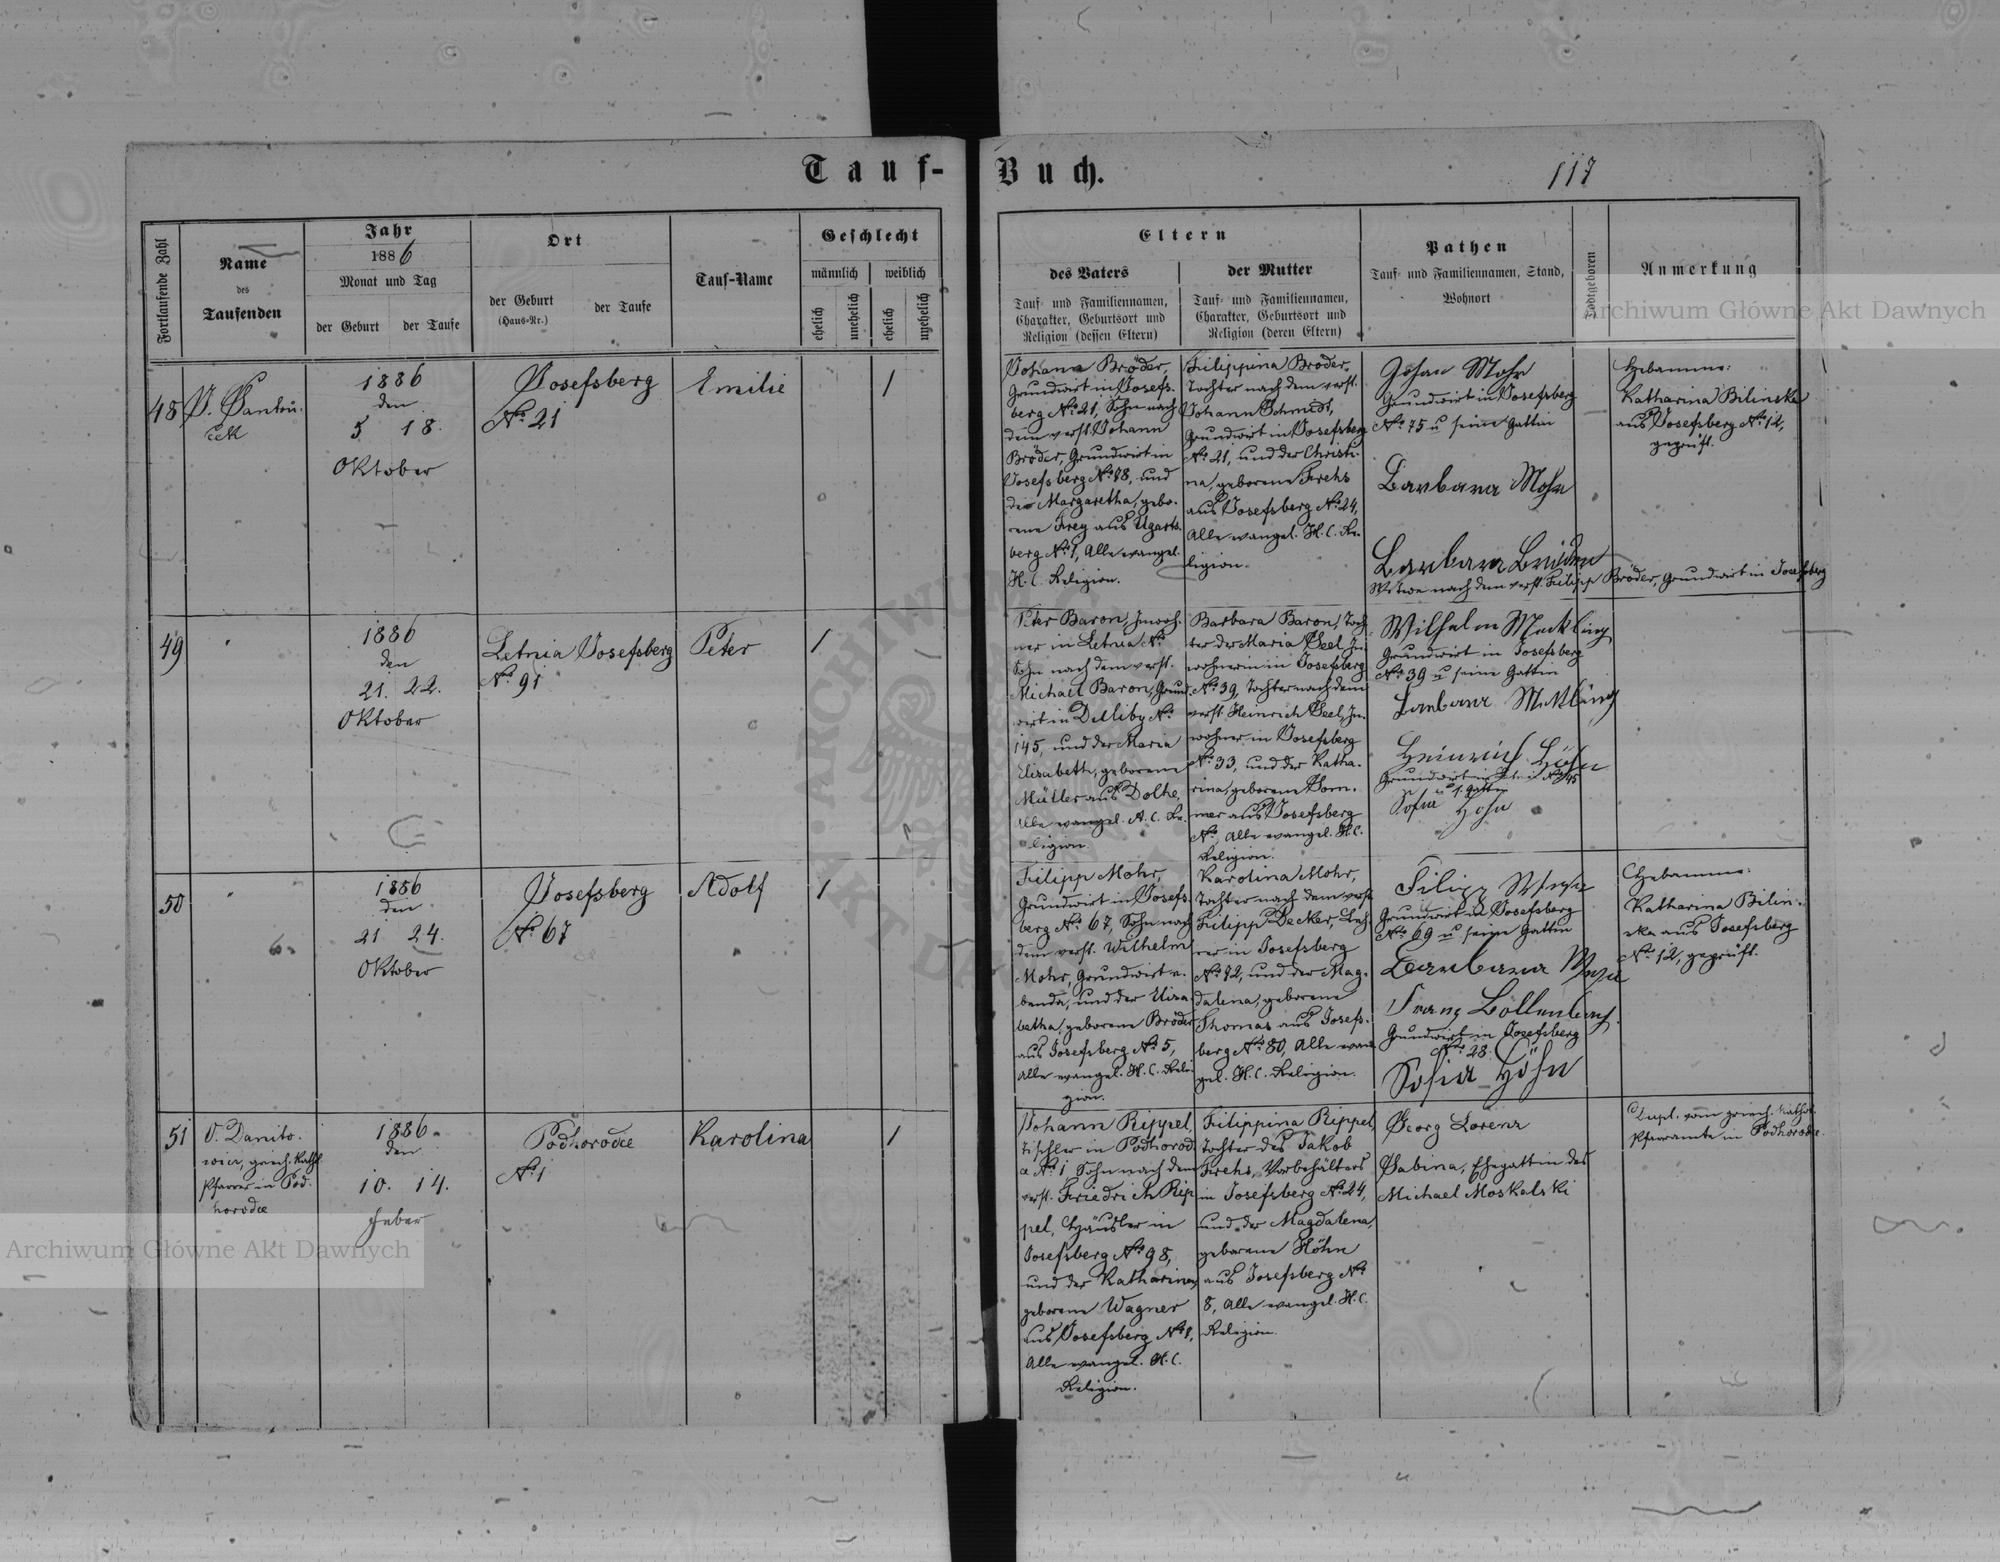 Tauf-Buch.
117
Fortlaufende Zahl
Name
des
Taufenden
Jahr
1886
Monat und Tag
der Geburt
der Taufe
Ort
der Geburt
(Haus-Nr.)
der Taufe
Tauf-Name
Geschlecht
männlich
weiblich
ehelich
unehelich
ehelich
unehelich
Eltern
des Vaters
Tauf- und Familiennamen,
Charakter, Geburtsort und
Religion (dessen Eltern)
der Mutter
Tauf- und Familiennamen,
Charakter, Geburtsort und
Religion (deren Eltern)
Pathen
Tauf- und Familiennamen, Stand,
Wohnort
Todtgeboren
Anmerkung
Archiwum Główne Akt Dawnych
48
1886
den
5. 18.
Oktober
Josefsberg
No 21
Emilie
1
Johann Bröder,
Grundwirt in Josefs-
berg No 21, Sohn nach
dem verst. Johann
Bröder, Grundwirt in
Josefsberg No 98, und
der Margaretha, gebo-
rene Frey aus Ugarts-
berg No 1, Alle evangel.
H. C. Religion.
Filippina Bröder,
Tochter nach dem verst.
Johann Schmidt,
Grundwirt in Josefsberg
No 21, und der Christi-
na, geborene Frehs
aus Josefsberg No 24,
Alle evangel. H. C. Re-
ligion.
Johan Mohr
Grundwirt in Josefsberg
No 75 u seine Gattin
Barbara Mohr
Barbara Bröder
Witwe nach dem verst. Filipp Bröder, Grundwirt in Josefsberg
Hebamme:
Katharina Bilinska
aus Josefsberg No 12,
geprüft.
49
1886
den
21. 22.
Oktober
Letnia Josefsberg
No 91
Peter
1
Peter Baron, Inwoh-
ner in Letnia No
Sohn nach dem verst.
Michael Baron, Grund-
wirt in No
145, und der Maria
Elisabeth, geborene
Müller aus Dolhe,
Alle evangel. A. C. Re-
ligion.
Barbara Baron, Toch-
ter der Maria Seel, In-
wohnerin in Josefsberg
No 39, Tochter nach dem
verst. Heinrich Seel, In-
wohner in Josefsberg
No 33, und der Katha-
rina, geborene Som-
mer aus Josefsberg
No, Alle evangel. H. C.
Religion.
Wilhelm Mekling
Grundwirt in Josefsberg
No 39 u seine Gattin
Barbara Mekling
Heinrich Höhn
Grundwirt in
Sofia Höhn
50
1886
den
21 24.
Oktober
Josefsberg
No 67
Adolf
1
Filipp Mohr,
Grundwirt in Josefs-
berg No 67, Sohn nach
dem verst. Wilhelm
Mohr, Grundwirt e-
benda, und der Elisa-
betha, geborene Bröder
aus Josefsberg No 5,
Alle evangel. H. C. Reli-
gion.
Karolina Mohr,
Tochter nach dem verst.
Filipp Decker, Leh-
rer in Josefsberg
No 92, und der Mag-
dalena, geborene
Thomas aus Josefs-
berg No 80, Alle evan-
gel. H. C. Religion.
Filipp
Grundwirt in Josefsberg
No 69 u seine Gattin
Barbara
Franz Bollenbach
Grundwirt in Josefsberg
No 28.
Sofia Höhn
Hebamme:
Katharina Bilin-
ska aus Josefsberg
No 12, geprüft.
51
griech. kathl.
Pfarrer in Pod-
horodce
1886
den
10. 14.
Podhorodce
No 1
Karolina
1
Johann Rippel,
Tischler in Podhorod-
ce No 1 Sohn nach dem
verst. Friedrich Rip-
pel, Häusler in
Josefsberg No 98,
und der Katharina,
geborene Wagner
aus Josefsberg No 1,
Alle evangel. H. C.
Religion.
Filippina Rippel,
Tochter des Jakob
Frehs, Vorbehälters
in Josefsberg No 24,
und der Magdalena,
geborene Höhn
aus Josefsberg No
8, Alle evangel. H. C.
Religion.
Georg Lorenz
Sabina, Ehegattin des
Michael Moskalski
vom griech. kathol.
Pfarramte in Podhorodce.
Archiwum Główne Akt Dawnych